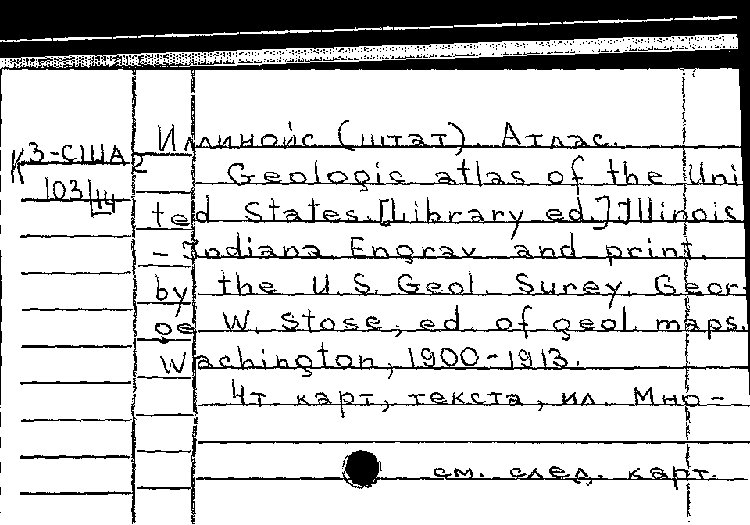 К3-США2
103/14
Иллинойс (штат). Атлас.
Geologic atlas of the Uni
ted States.[Library ed.]Illinois
- Indiana Engrav and print.
by the U.S. Geol. Surey. Geor-
ge W. Stose, ed. of geol. maps.
Wachington, 1900-1913.
4т. карт, текста, ил. Мно-
см. след. карт.